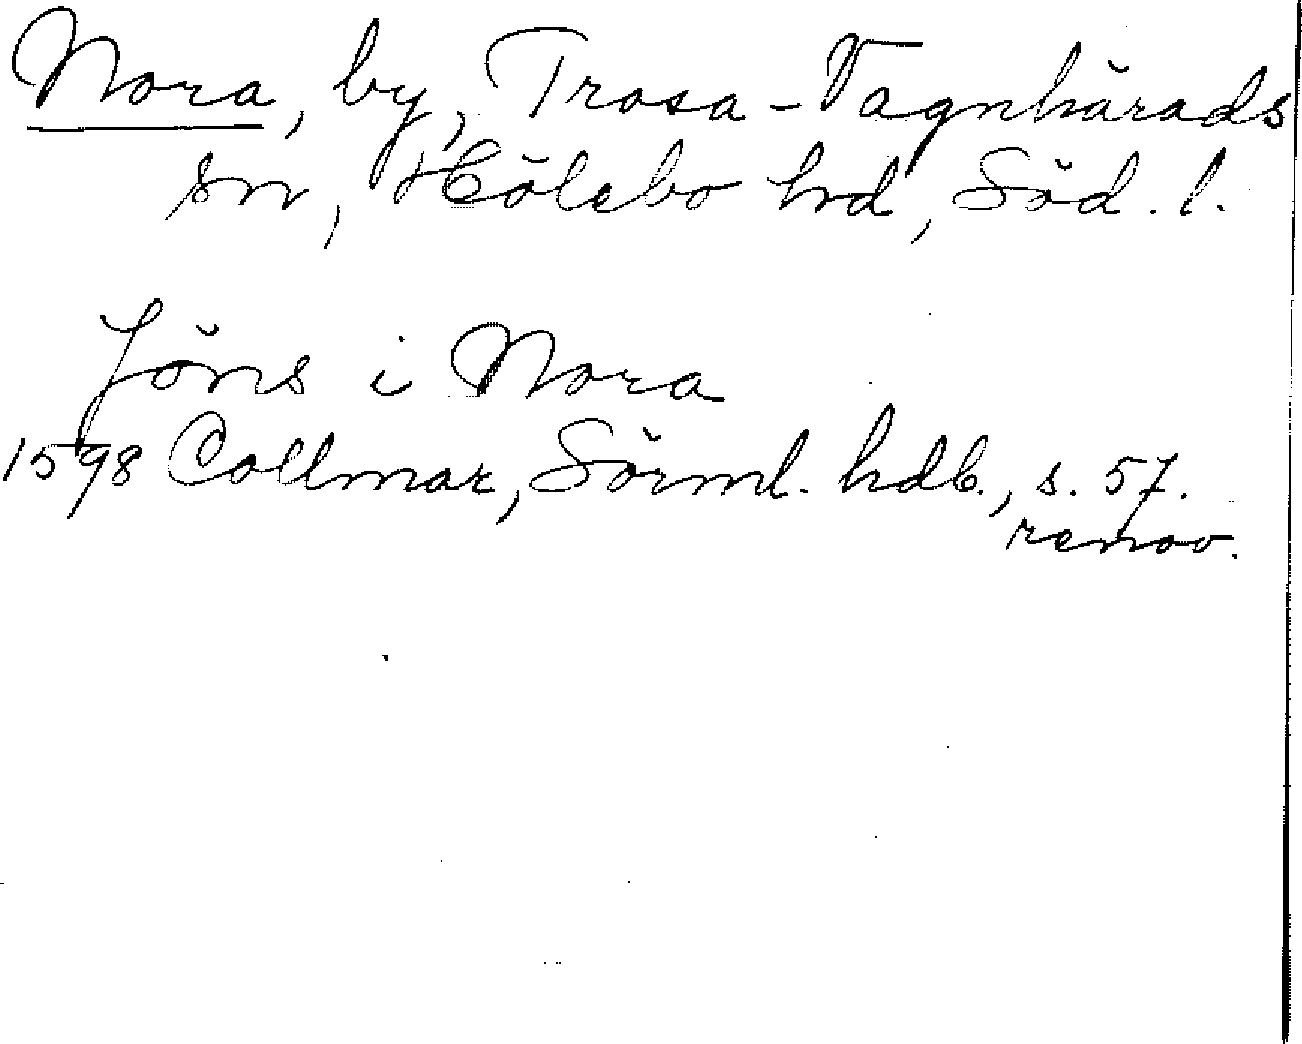 Nora, by, Trosa-Vagnhärads
sn, Hölebo hd, Söd. l.
Jöns i Nora
1598 Collmar, Sörml. hdb., s. 57.
renov.